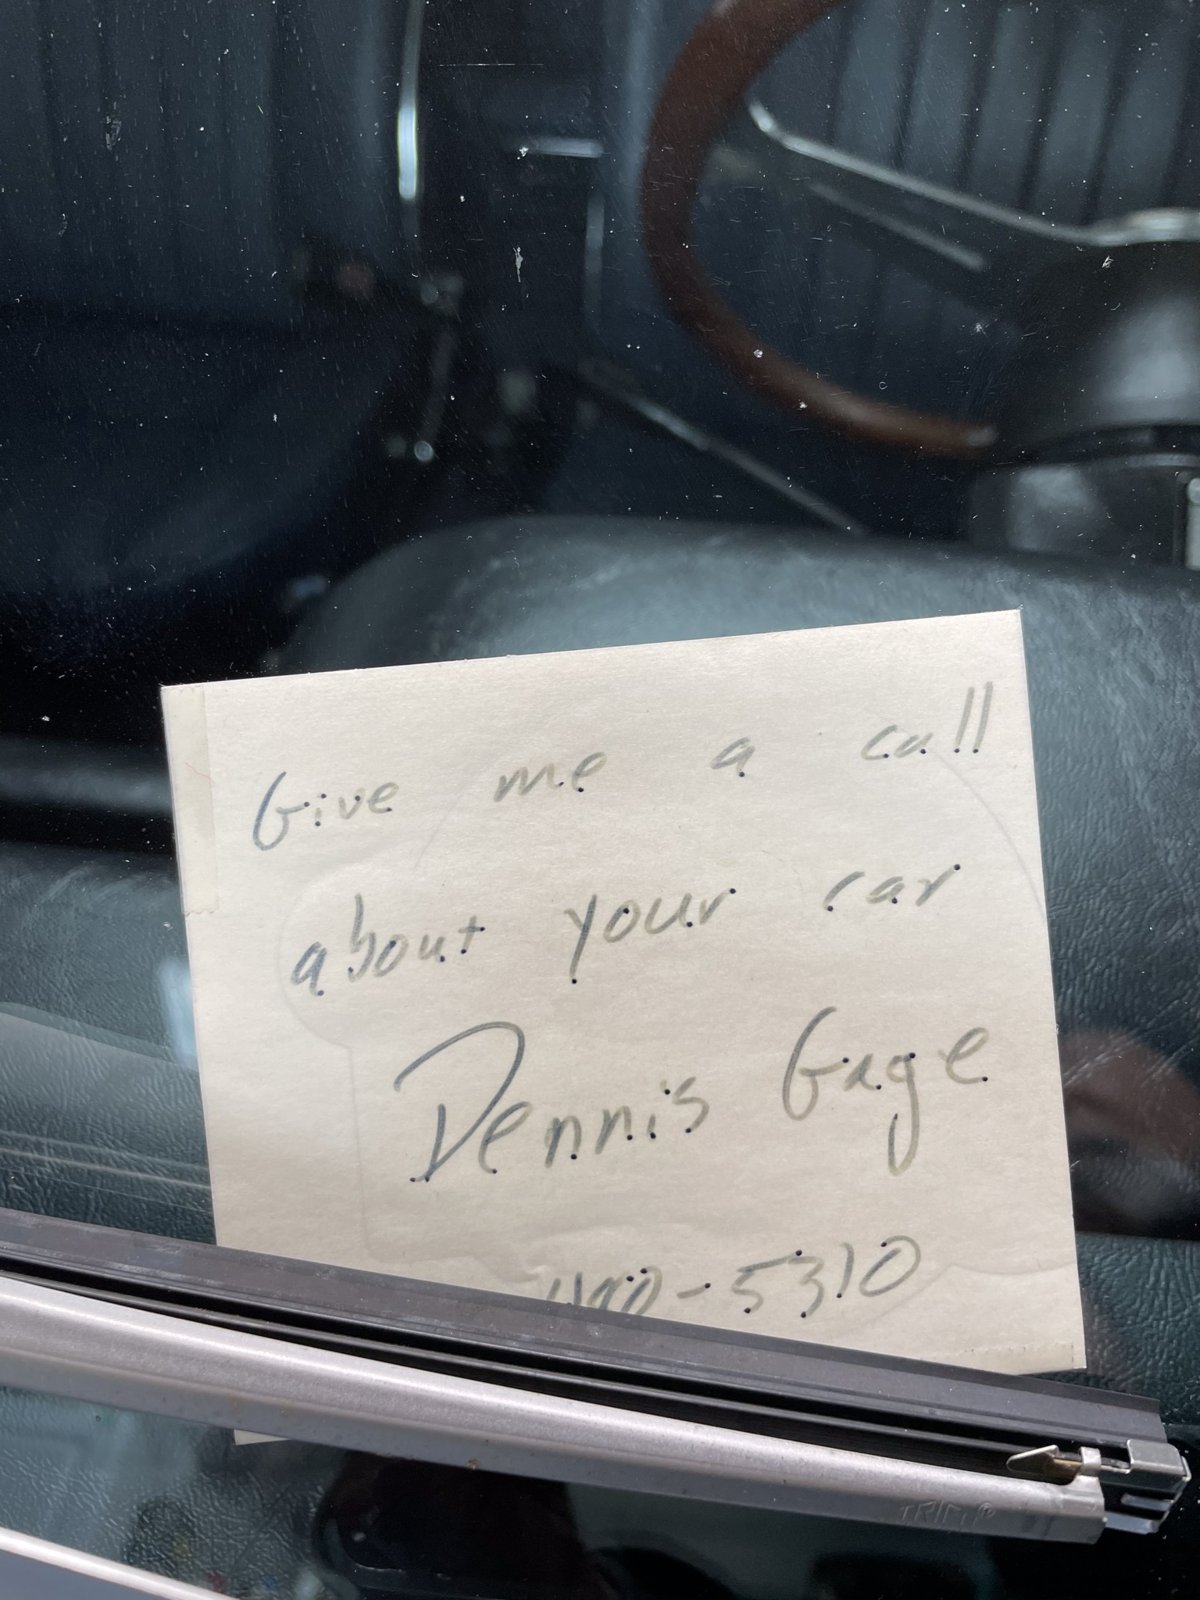 Give me a call
about your car
Dennis Gage
490-5310
TRICO